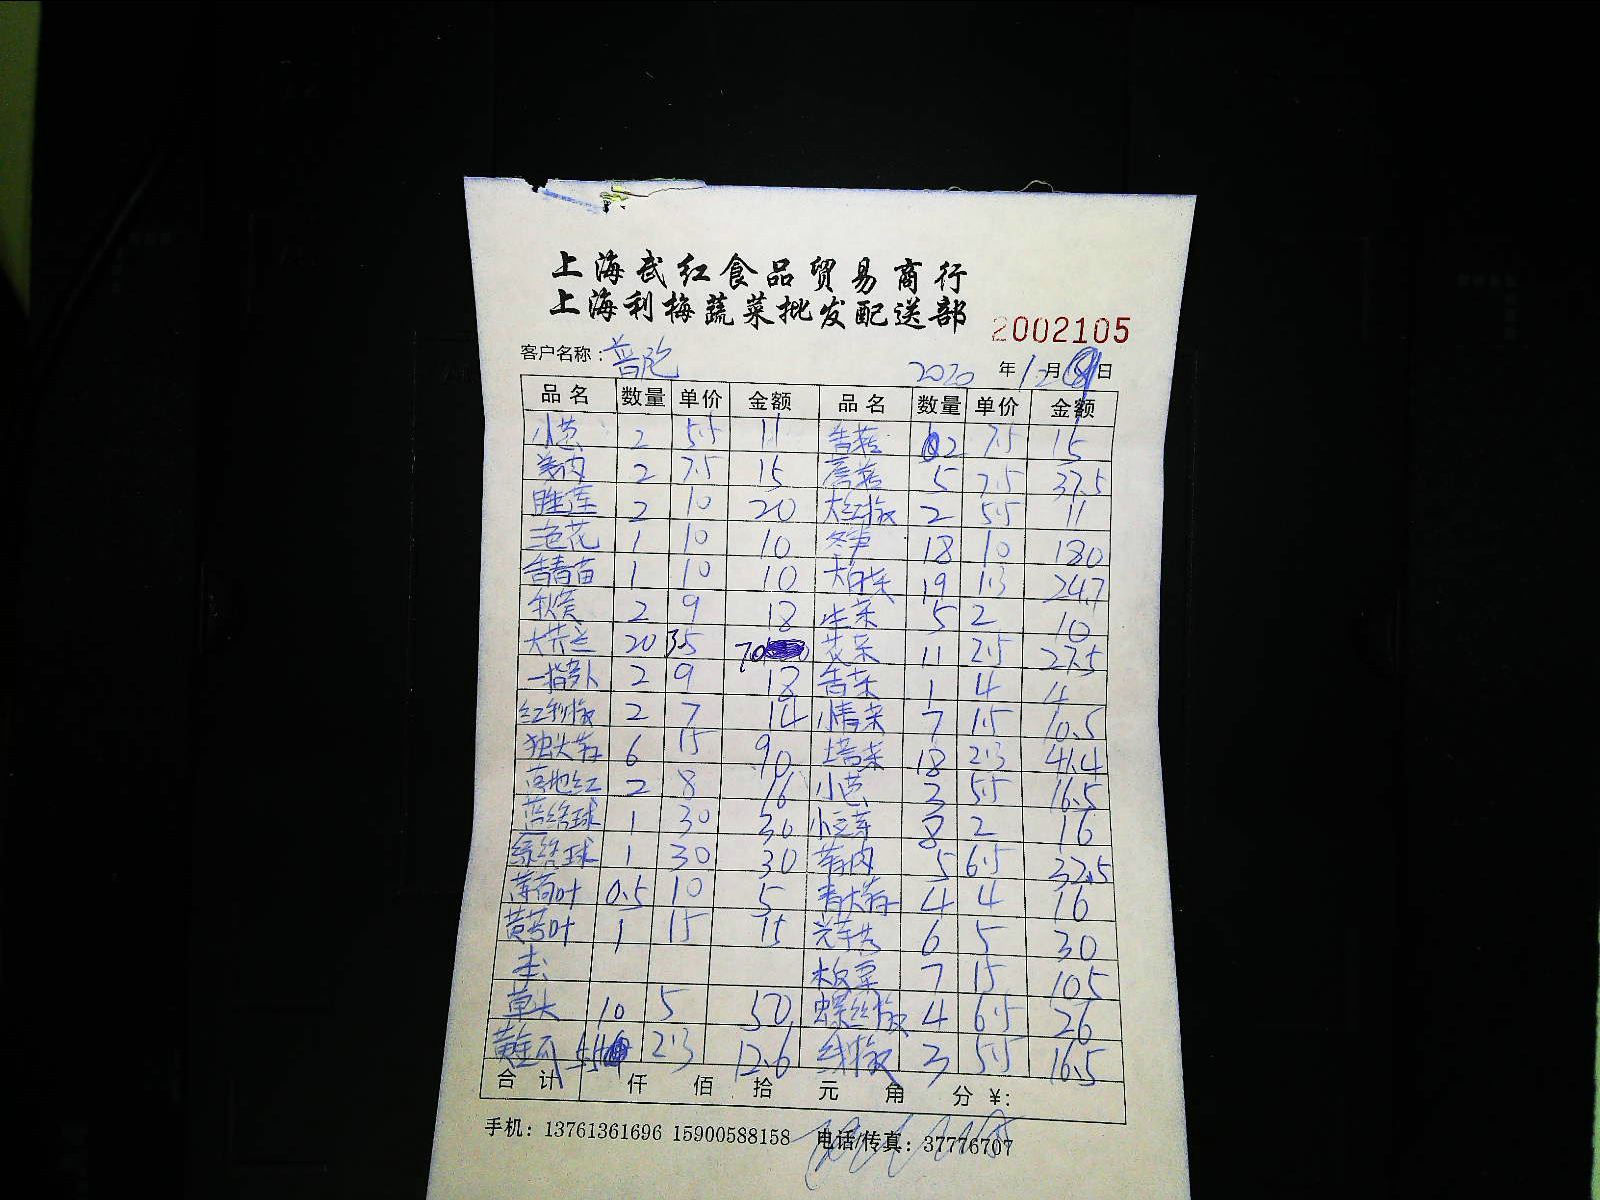 上海武红食品贸易商行
上海利梅蔬菜批发配送部
2002105
客户名称：普陀 2020 年 12 月 9 日
品名 数量 单价 金额 品名 数量 单价 金额
小芒 2 5.5 11 香菇 2 7.5 15
2 7.5 15 5 7.5 37.5
西生莲 2 10 20 大红椒 2 5.5 11
1 10 10 冬笋 18 10 180
1 10 10 大白菜 19 1.3 24.7
秋葵 2 9 18 生菜 5 2 10
大芥兰 20 3.5 70 11 2.5 27.5
一指萝卜 2 9 18 苦菜 1 4 4
红利椒 2 7 14 小青菜 7 1.5 10.5
独头蒜 6 15 90 塔菜 18 2.3 41.4
2 8 16 小芒 3 5.5 16.5
1 30 30 小豆芽 8 2 16
1 30 30 5 6.5 32.5
薄荷叶 0.5 10 5 青大蒜 4 4 16
黄芽叶 1 15 15 6 5 30
7 15 105
草头 10 5 50 螺丝椒 4 6.5 26
黄金瓜 5.5 2.3 12.6 线椒 3 5.5 16.5
合计 仟 佰 拾 元 角 分 ¥：
手机：13761361696 15900588158 电话/传真：37776707